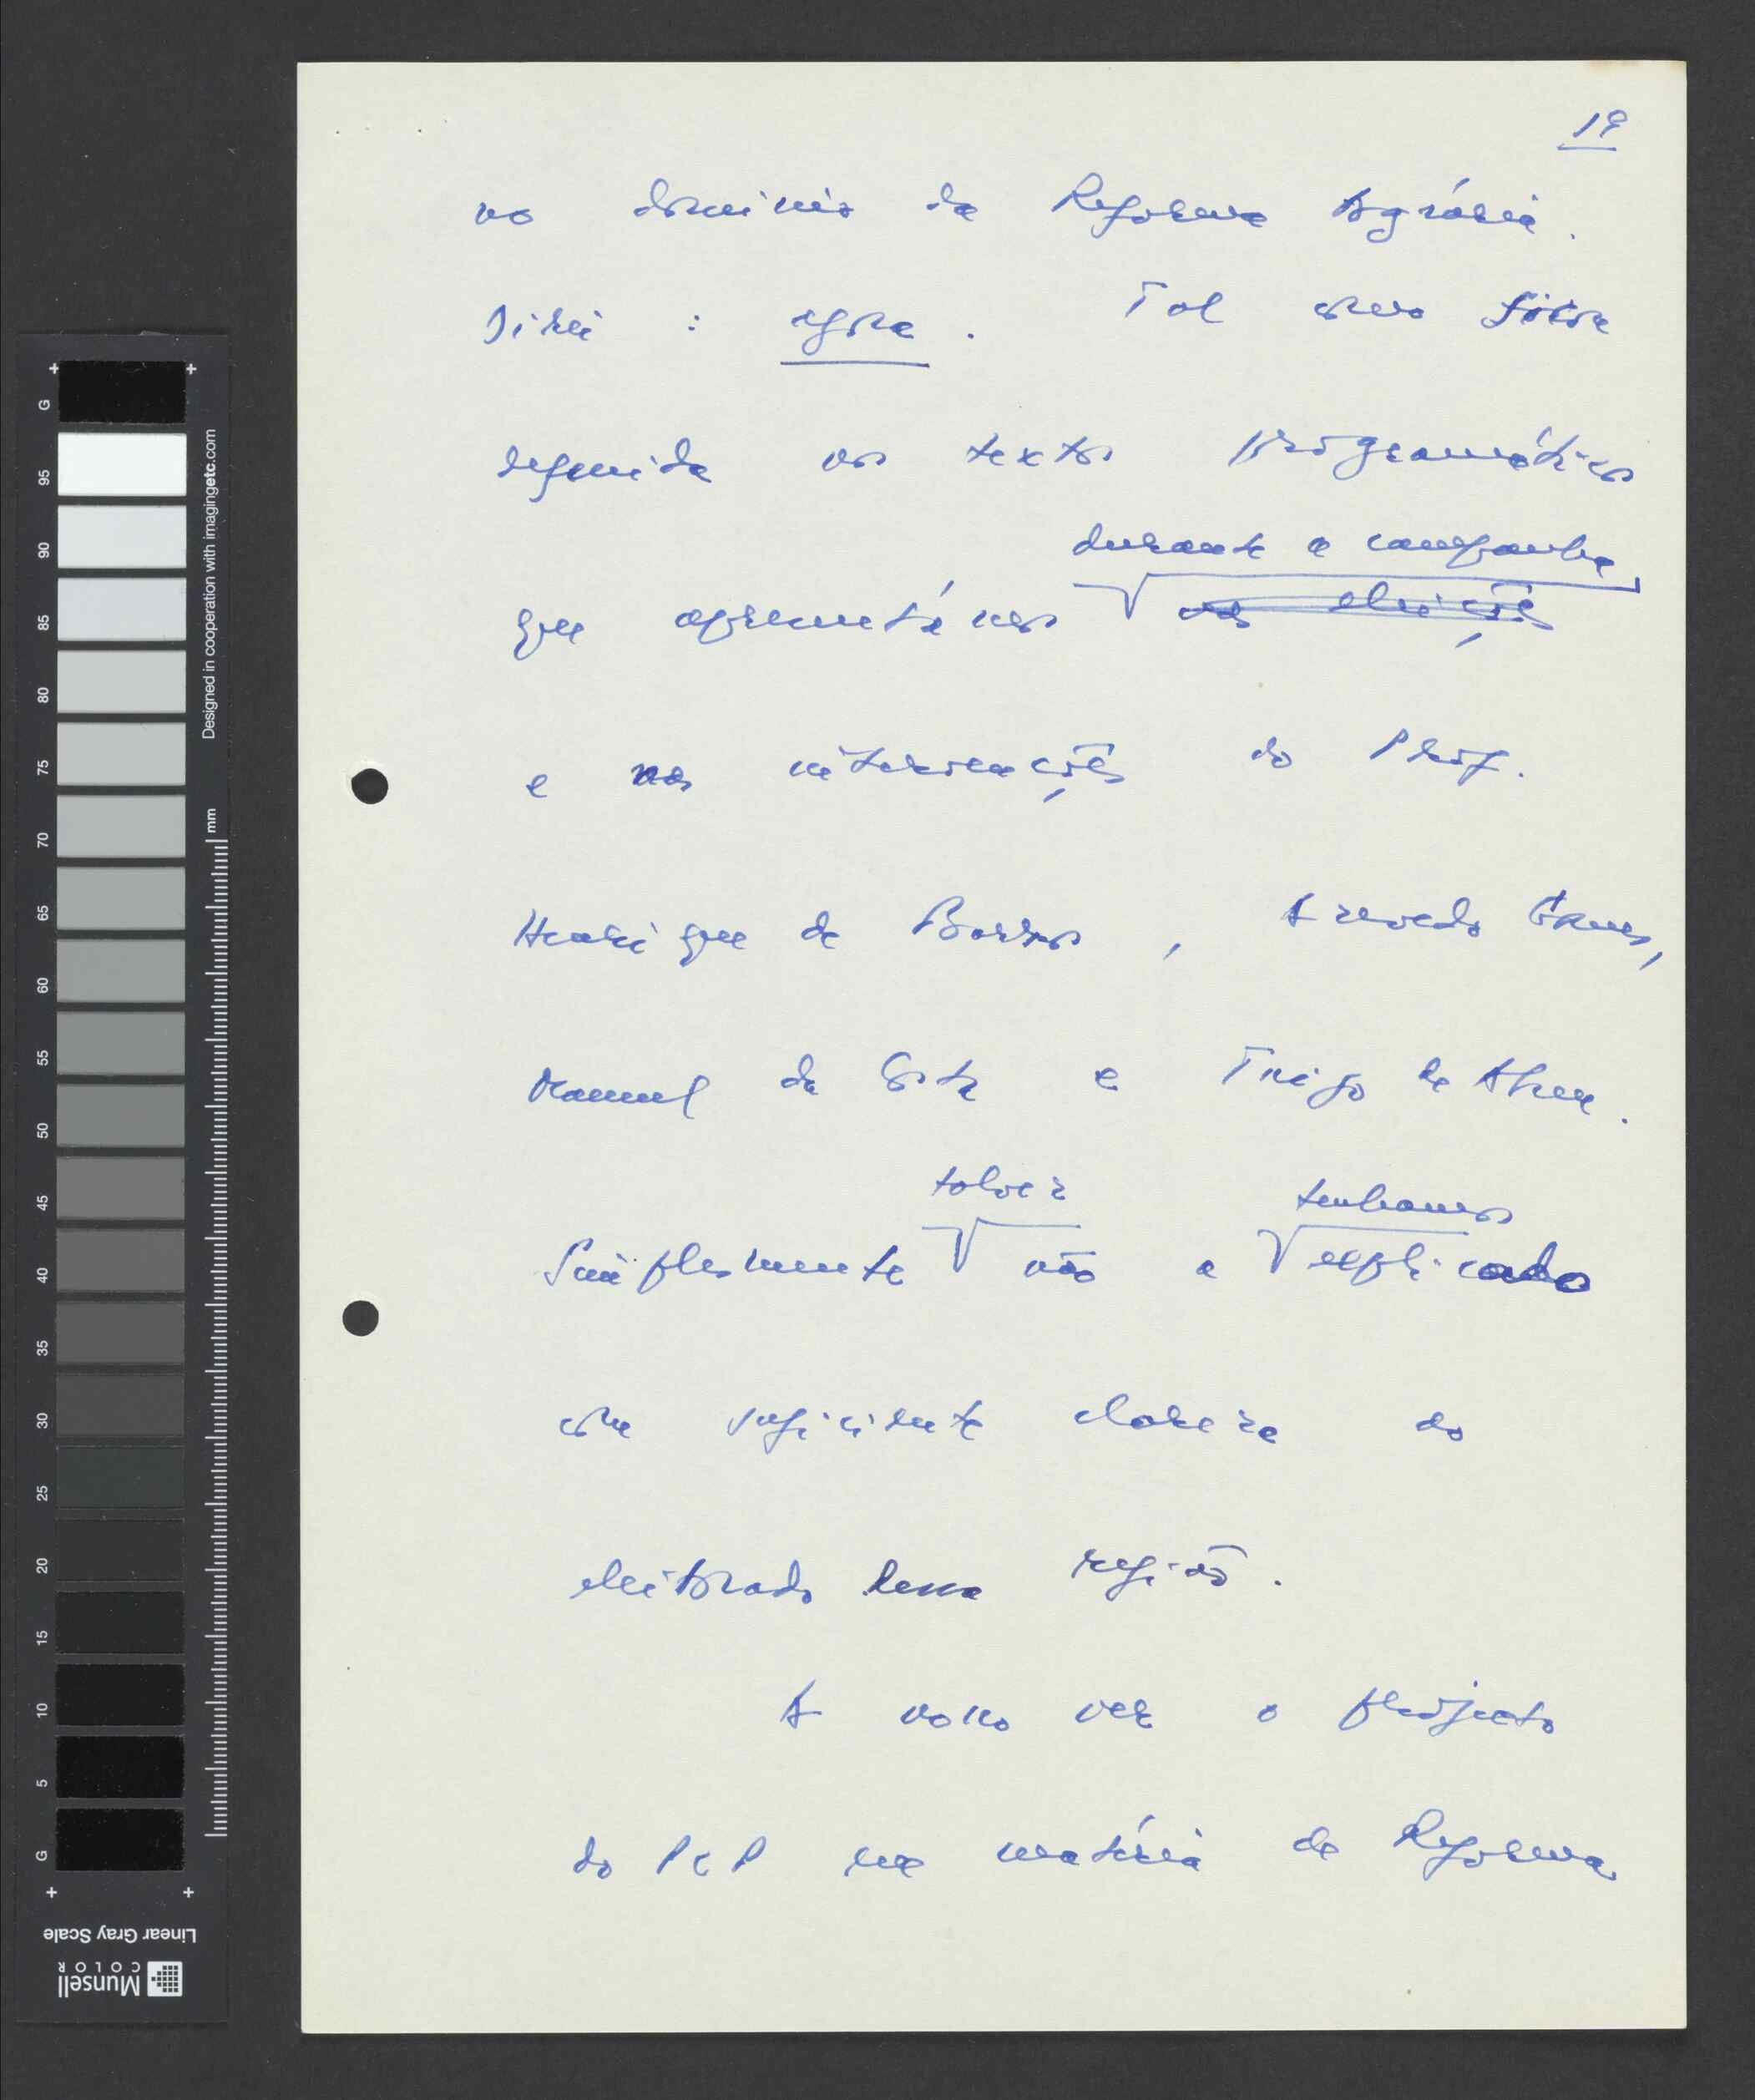 19
no dominio da Reforma Agrária.
Direi : agora. Tal como fôra
definida nos textos programáticos
durante a campanha
que apresentámos nas eleições
e nas intervenções do Prof.
Henrique de Barros, Azevedo Gomes,
Manuel da Costa e Trigo de Abreu.
talvez tenhamos
Simplesmente não a explicado
com suficiente clareza ao
eleitorado dessa região.
A nosso ver o projecto
do PCP na matéria de Reforma
G
95
90
85
80
75
70
65
60
55
50
45
40
35
30
25
20
15
10
5
G
Designed in cooperation with imagingetc.com
mm
Linear Gray Scale
Munsell
COLOR